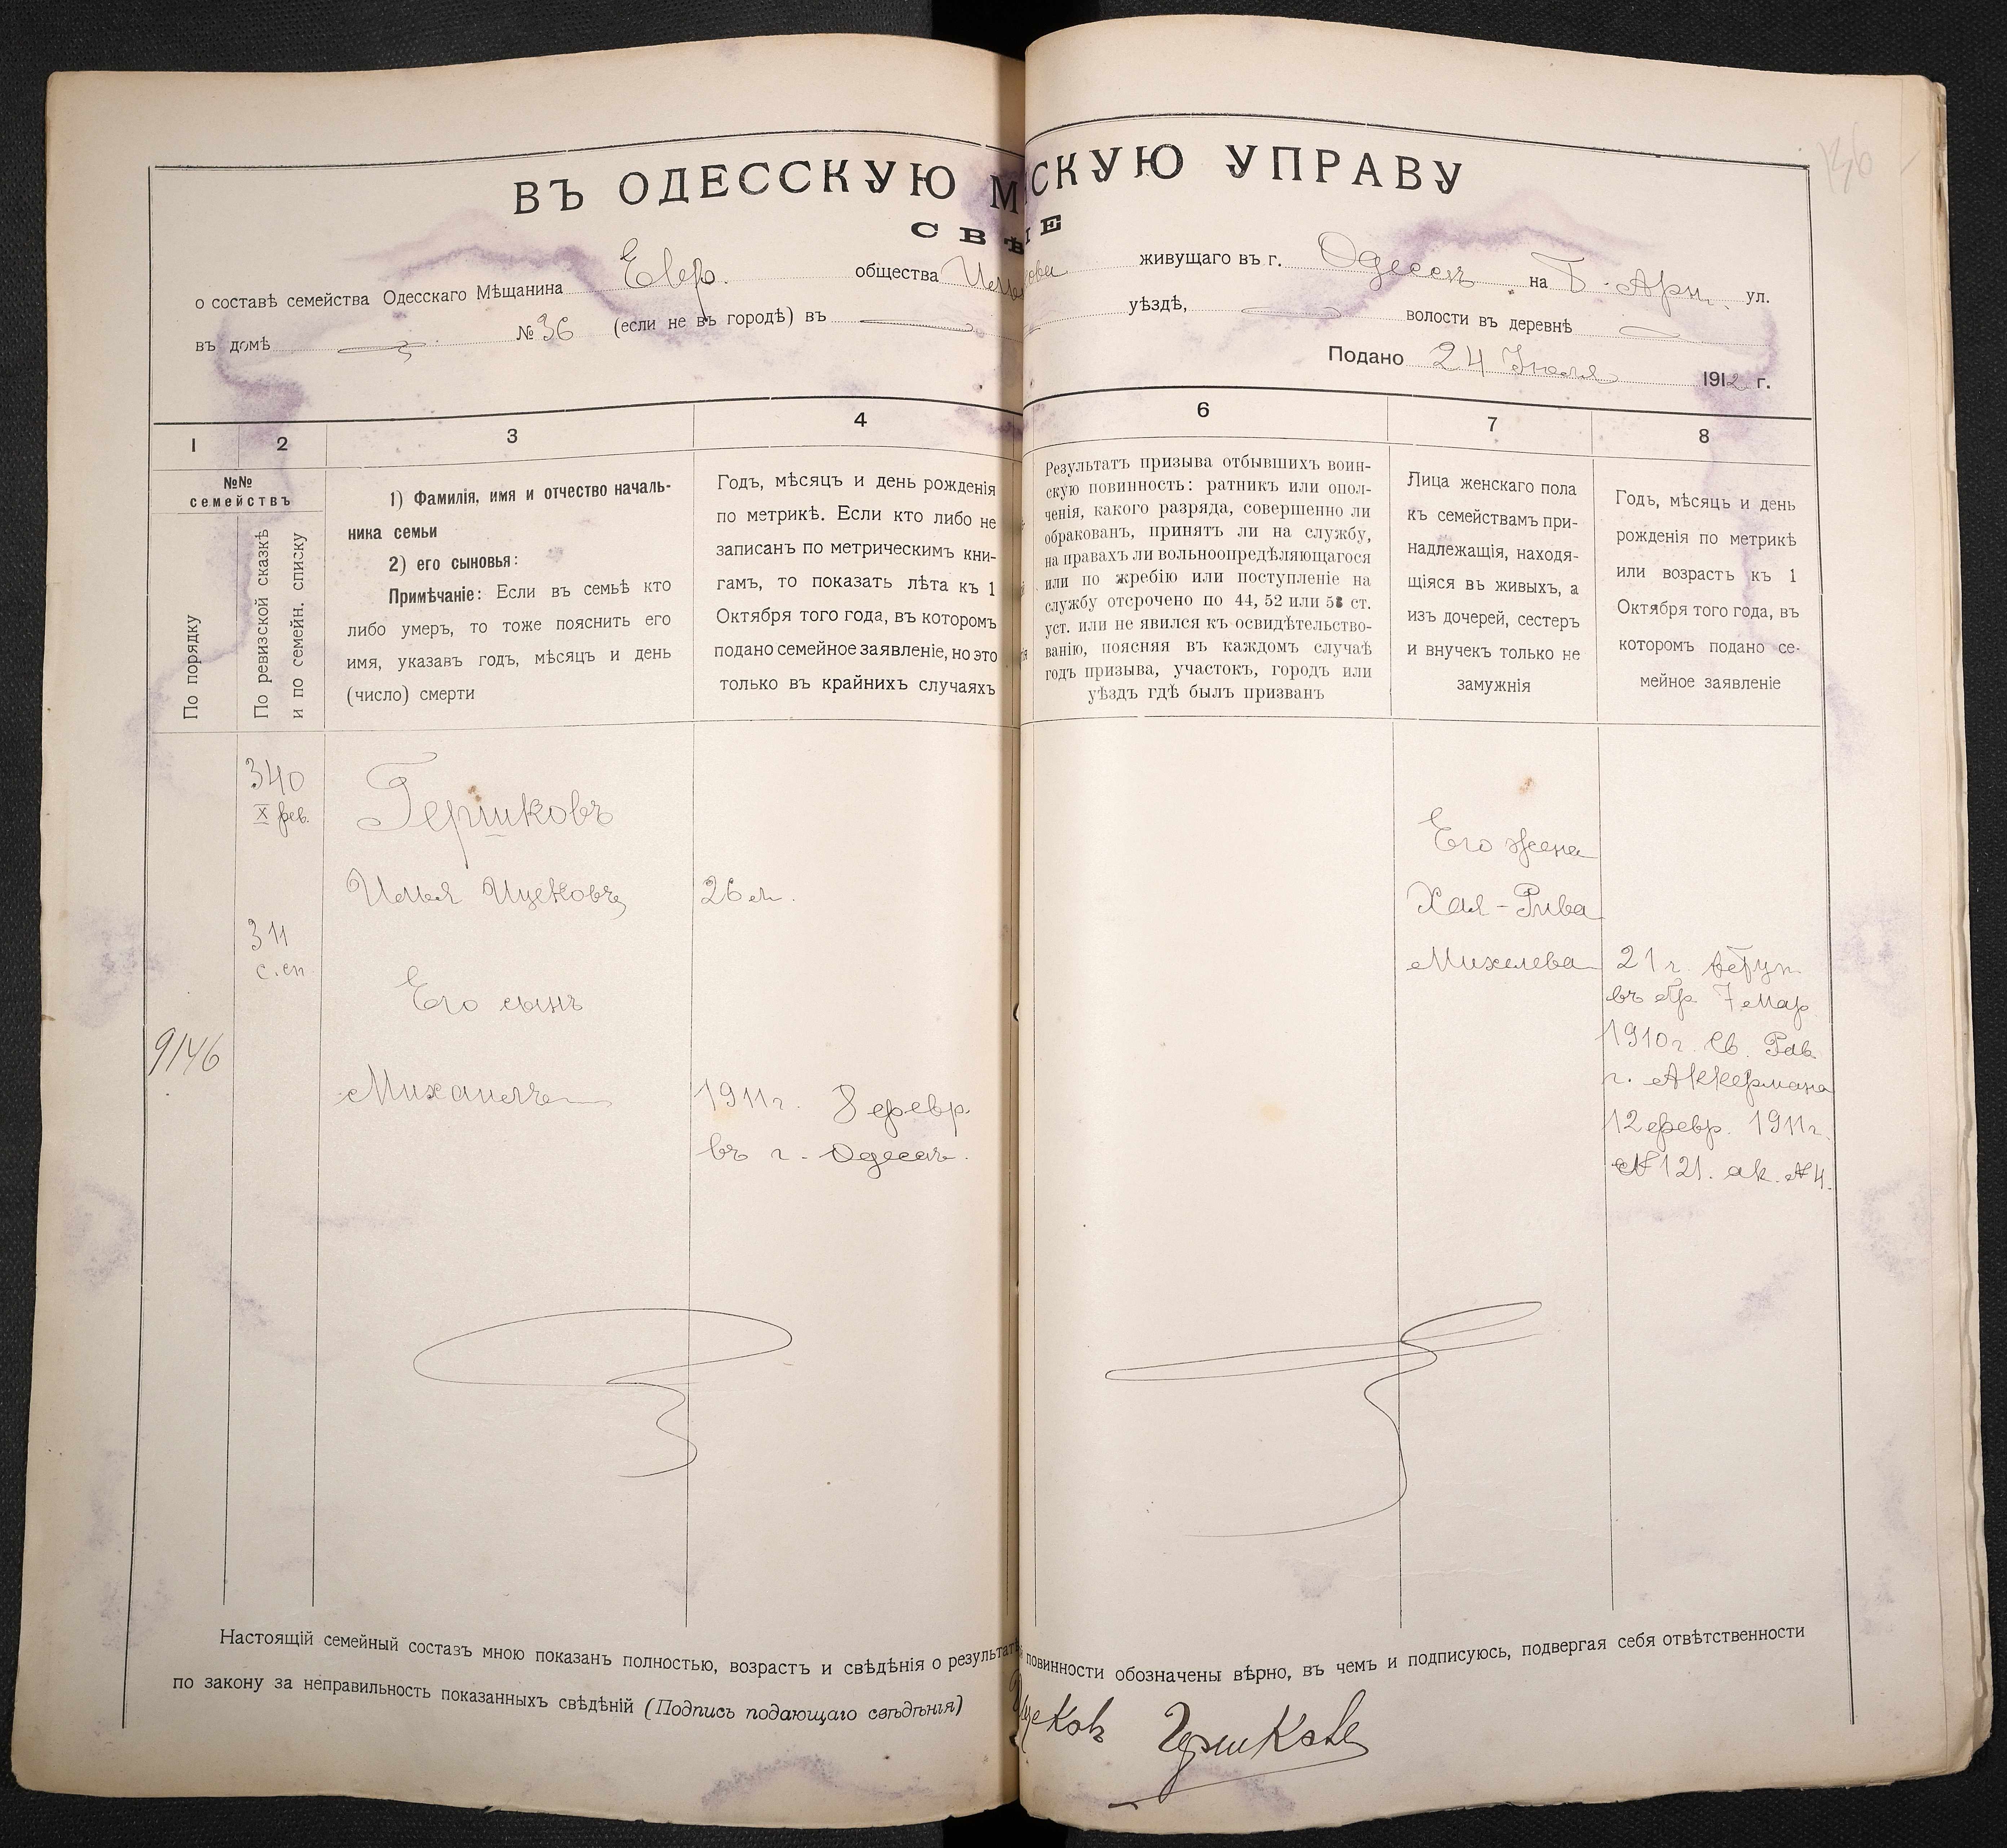 ВЪ ОДЕССКУЮ М СКУЮ УПРАВУ
СВѢ ІЕ
о составѣ семейства Одесскаго Мѣщанина Евр. общества живущаго въ г. Одессѣ на Б. Арн. ул.
въ домѣ № 36 (если не въ городѣ) въ уѣздѣ, волости въ деревнѣ
Подано 24 Июля 1912 г.
1 2 3 4 6 7 8
№№
семействъ
По порядку
По ревизской сказкѣ
и по семейн. списку
1) Фамилія, имя и отчество началь-
ника семьи
2) его сыновья:
Примѣчаніе: Если въ семьѣ кто
либо умеръ, то тоже пояснить его
имя, указавъ годъ, мѣсяцъ и день
(число) смерти
Годъ, мѣсяцъ и день рожденія
по метрикѣ. Если кто либо не
записанъ по метрическимъ кни-
гамъ, то показать лѣта къ 1
Октября того года, въ которомъ
подано семейное заявленіе, но это
только въ крайнихъ случаяхъ
Результатъ призыва отбывшихъ воин-
скую повинность: ратникъ или опол-
ченія, какого разряда, совершенно ли
обракованъ, принятъ ли на службу,
на правахъ ли вольноопредѣляющагося
или по жребію или поступленіе на
службу отсрочено по 44, 52 или 53 ст.
уст. или не явился къ освидѣтельство-
ванію, поясняя въ каждомъ случаѣ
годъ призыва, участокъ, городъ или
уѣздъ гдѣ былъ призванъ
Лица женскаго пола
къ семействамъ при-
надлежащія, находя-
щіяся въ живыхъ, а
изъ дочерей, сестеръ
и внучекъ только не
замужнія
Годъ, мѣсяцъ и день
рожденія по метрикѣ
или возрастъ къ 1
Октября того года, въ
которомъ подано се-
мейное заявленіе
340
X рев.
311
с. сп.
9146
Гершковъ
Илья Ицковъ
Его сынъ
Михаилъ
26 л.
1911 г. 8 февр.
въ г. Одессѣ.
Его жена
Хая-Рива
Михелева
21 г. вступ.
въ бр. 7 мар.
1910 г. св. Рав.
г. Аккермана
12 февр. 1911 г.
№ 121. ак. № 4.
Настоящій семейный составъ мною показанъ полностью, возрастъ и свѣдѣнія о результат повинности обозначены вѣрно, въ чемъ и подписуюсь, подвергая себя отвѣтственности
по закону за неправильность показанныхъ свѣдѣній (Подпись подающаго свѣдѣнія)
Гершковъ